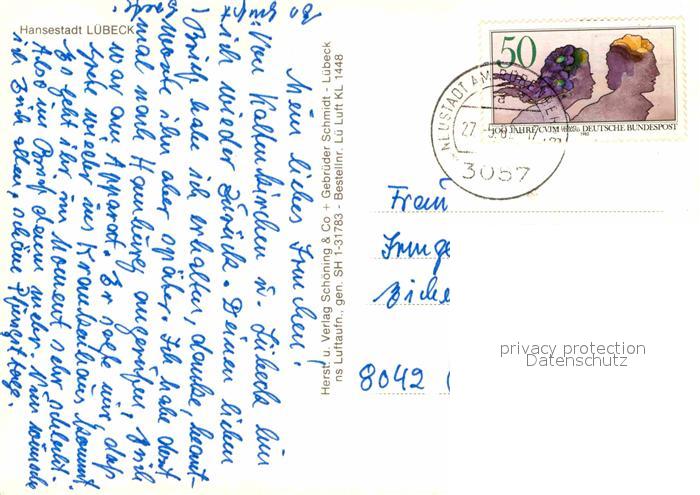 Hansestadt LÜBECK
Mein liebes Irmchen!
Von Kaltenkirchen u. Lübeck bin
ich wieder zurück. Deinen lieben
Brief habe ich erhalten, danke, beant-
worte ihn aber später. Ich habe dort
mal nach Hamburg angerufen,
war am Apparat. Er sagte mir, daß
wieder ins Krankenhaus kommt
Es geht ihr im Moment sehr schlecht.
Also im Brief dann mehr. Nun wünsche
ich Euch allen, schöne Pfingsttage.
Herst. u. Verlag Schöning & Co + Gebrüder Schmidt - Lübeck
ns Luftaufn., gen. SH 1-31783 - Bestellnr. Lü Luft KL 1448
50
100 JAHRE CVJM DEUTSCHE BUNDESPOST
NEUSTADT AM RÜBENBERGE
a
27.-5.82-17
3057
Frau
8042
privacy protection
Datenschutz